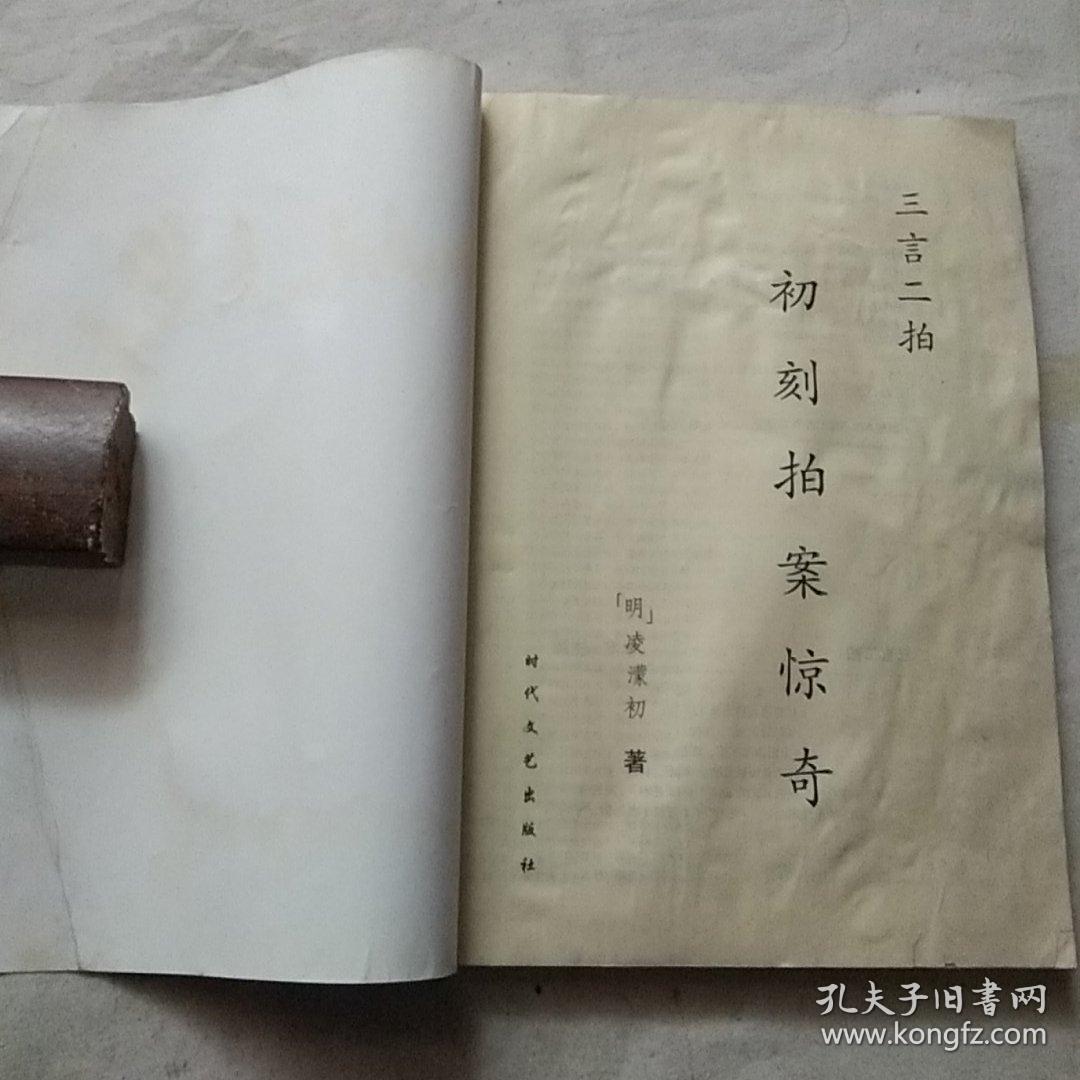 三言二拍
初刻拍案惊奇
「明」凌濛初 著
时代文艺出版社
孔夫子旧書网
www.kongfz.com